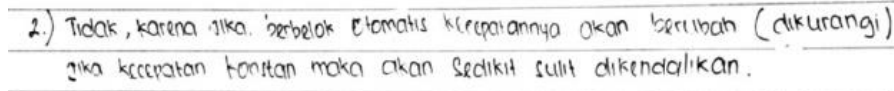 2.) Tidak, karena jika berbelok otomatis kecepatannya akan berubah (dikurangi)
jika kecepatan konstan maka akan sedikit sulit dikendalikan.